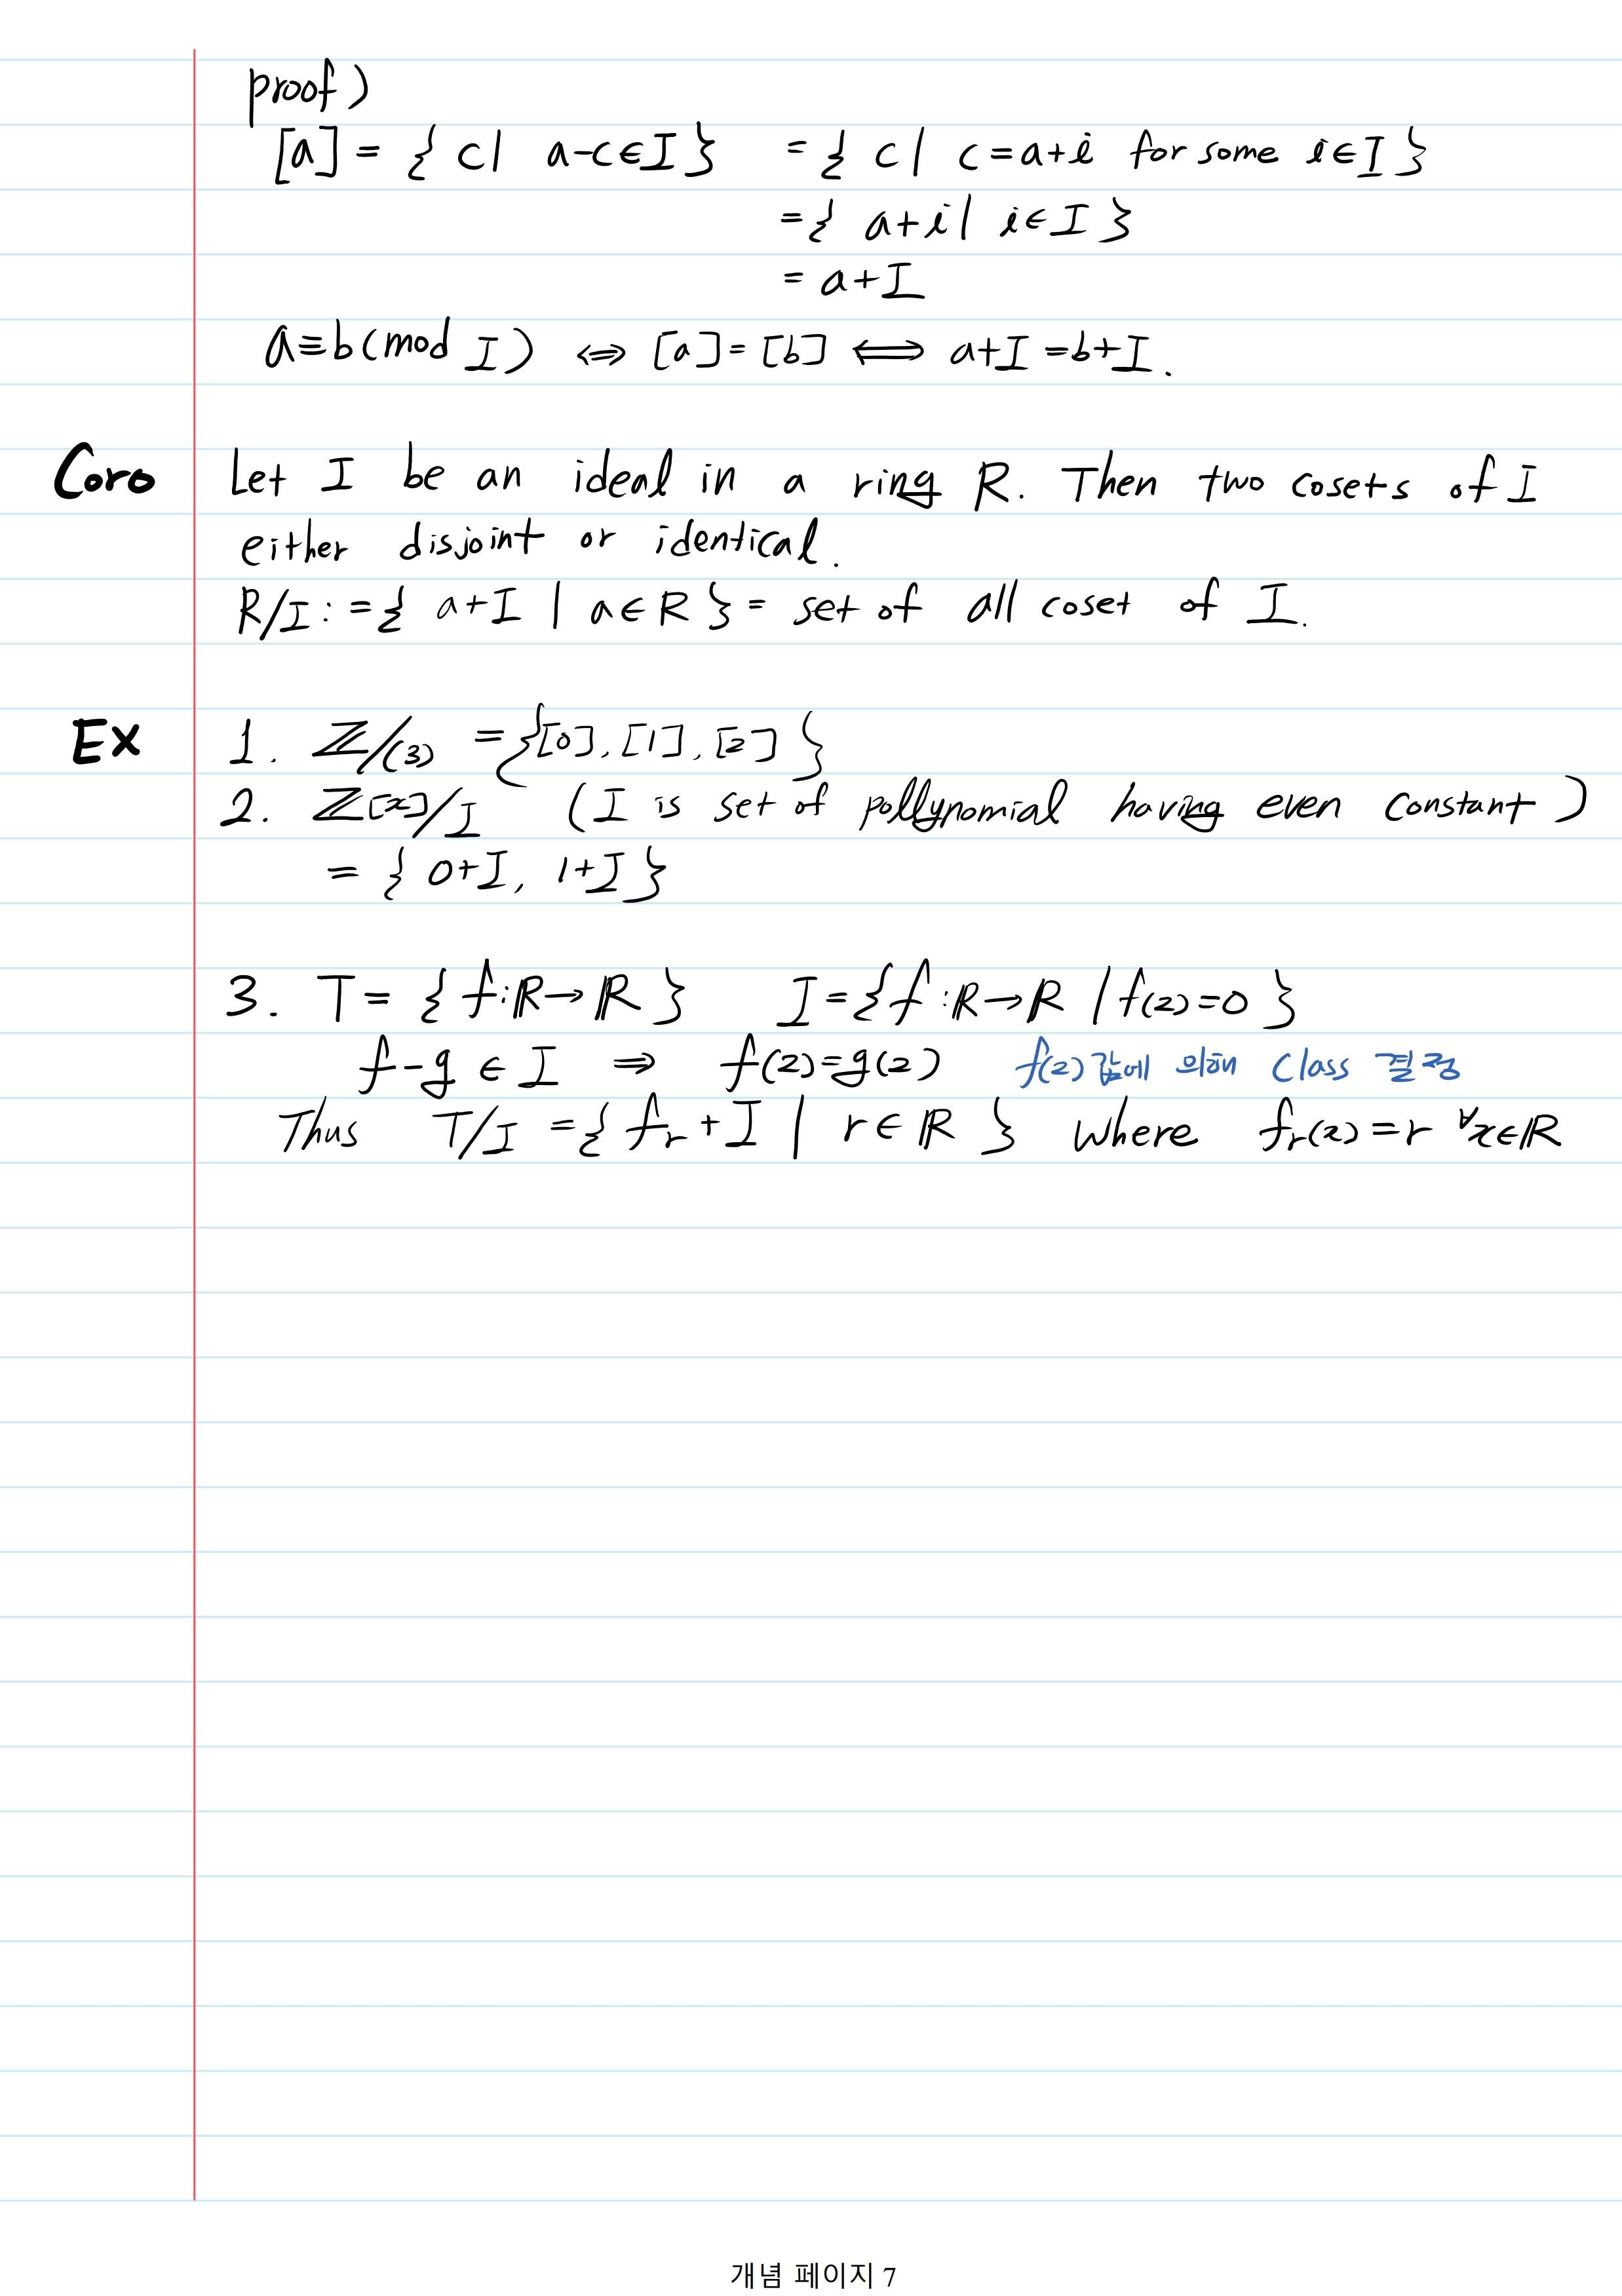 proof)
[a] = { c | a-c∈I } = { c | c=a+i for some i∈I }
={ a+i | i∈I }
= a+I
a≡b(mod I) ⇔ [a]=[b] ⟺ a+I=b+I.
Coro Let I be an ideal in a ring R. Then two cosets of I
either disjoint or identical.
R/I := { a+I | a∈R } = set of all coset of I.
Ex 1. ℤ/(3) = {[0], [1], [2]}
2. ℤ[x]/I (I is set of pollynomial having even constant)
= { 0+I, 1+I }
3. T= { f:ℝ→ℝ } I={f:ℝ→ℝ | f(2)=0 }
f-g ∈ I ⇒ f(2)=g(2) f(2)값에 의해 class 결정
Thus T/I ={ fr+I | r∈ℝ } where fr(x)=r ∀x∈ℝ
개념 페이지 7